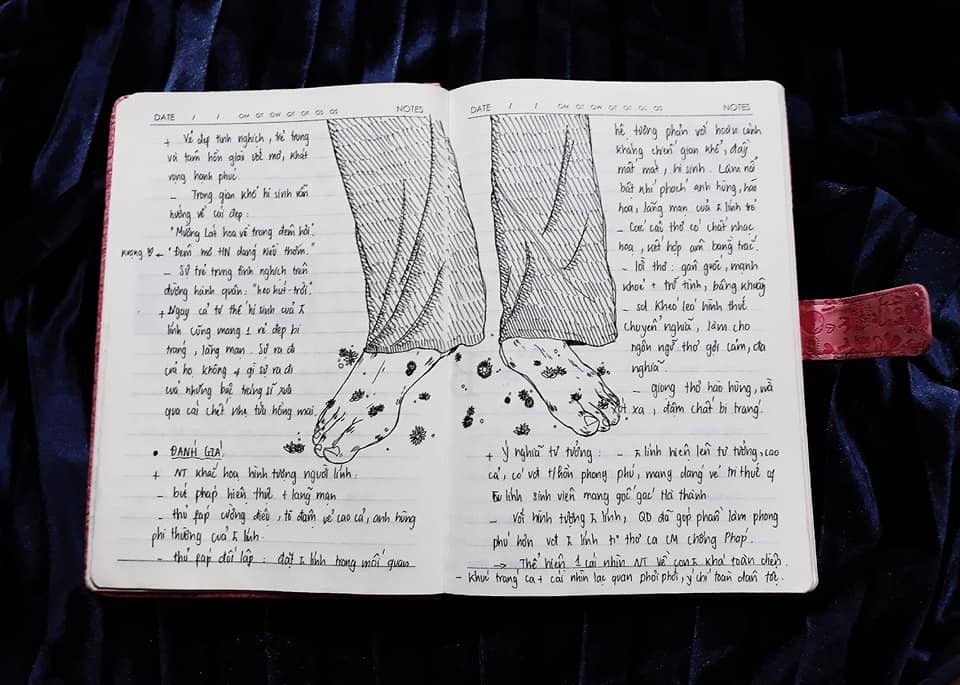 DATE / / OM OT OW OT OF OS OS NOTES
+ Vẻ đẹp tinh nghịch, trẻ trung
và tâm hồn giàu ước mơ, khát
vọng hạnh phúc.
– Trong gian khổ hi sinh vẫn
hướng về cái đẹp:
"Mường Lát hoa về trong đêm hơi".
hương ← "Đêm mơ HN dáng kiều thơm."
– Sự trẻ trung tinh nghịch trên
đường hành quân: "heo hút - trời".
+ Ngay cả tư thế hi sinh của
lính cũng mang 1 vẻ đẹp bi
tráng, lãng mạn. Sự ra đi
của họ không ≠ gì sự ra đi
của những bậc tráng sĩ xưa
qua cái chết nhẹ tựa hồng mao.
• ĐÁNH GIÁ:
+ NT khắc họa hình tượng người lính:
– bút pháp hiện thực + lãng mạn
– thủ pháp cường điệu, tô đậm vẻ cao cả, anh hùng
phi thường của lính.
– thủ pháp đối lập: đặt lính trong mối quan
DATE / / OM OT OW OT OF OS OS NOTES
hệ tương phản với hoàn cảnh
kháng chiến gian khổ, đầy
mất mát, hi sinh. Làm nổi
bật khí phách anh hùng, hào
hoa, lãng mạn của lính trẻ
– Các câu thơ có chất nhạc
họa, kết hợp âm bằng trắc.
– lời thơ: gân guốc, mạnh
khoẻ + trữ tình, bâng khuâng
– sd khéo léo hình thức
chuyển nghĩa, làm cho
ngôn ngữ thơ gợi cảm, đa
nghĩa.
– giọng thơ hào hùng, vừa
xót xa, đậm chất bi tráng.
+ Ý nghĩa tư tưởng: – lính hiện lên tư tưởng, cao
cả, có phong phú, mang dáng vẻ tri thức của
lính sinh viên mang gốc gác Hà thành.
– Với hình tượng lính, QD đã góp phần làm phong
phú hơn lính thơ ca CM chống Pháp.
→ Thể hiện 1 cái nhìn NT về con khá toàn diện.
– Khúc tráng ca + cái nhìn lạc quan phơi phới, ý chí toàn dân tộc.